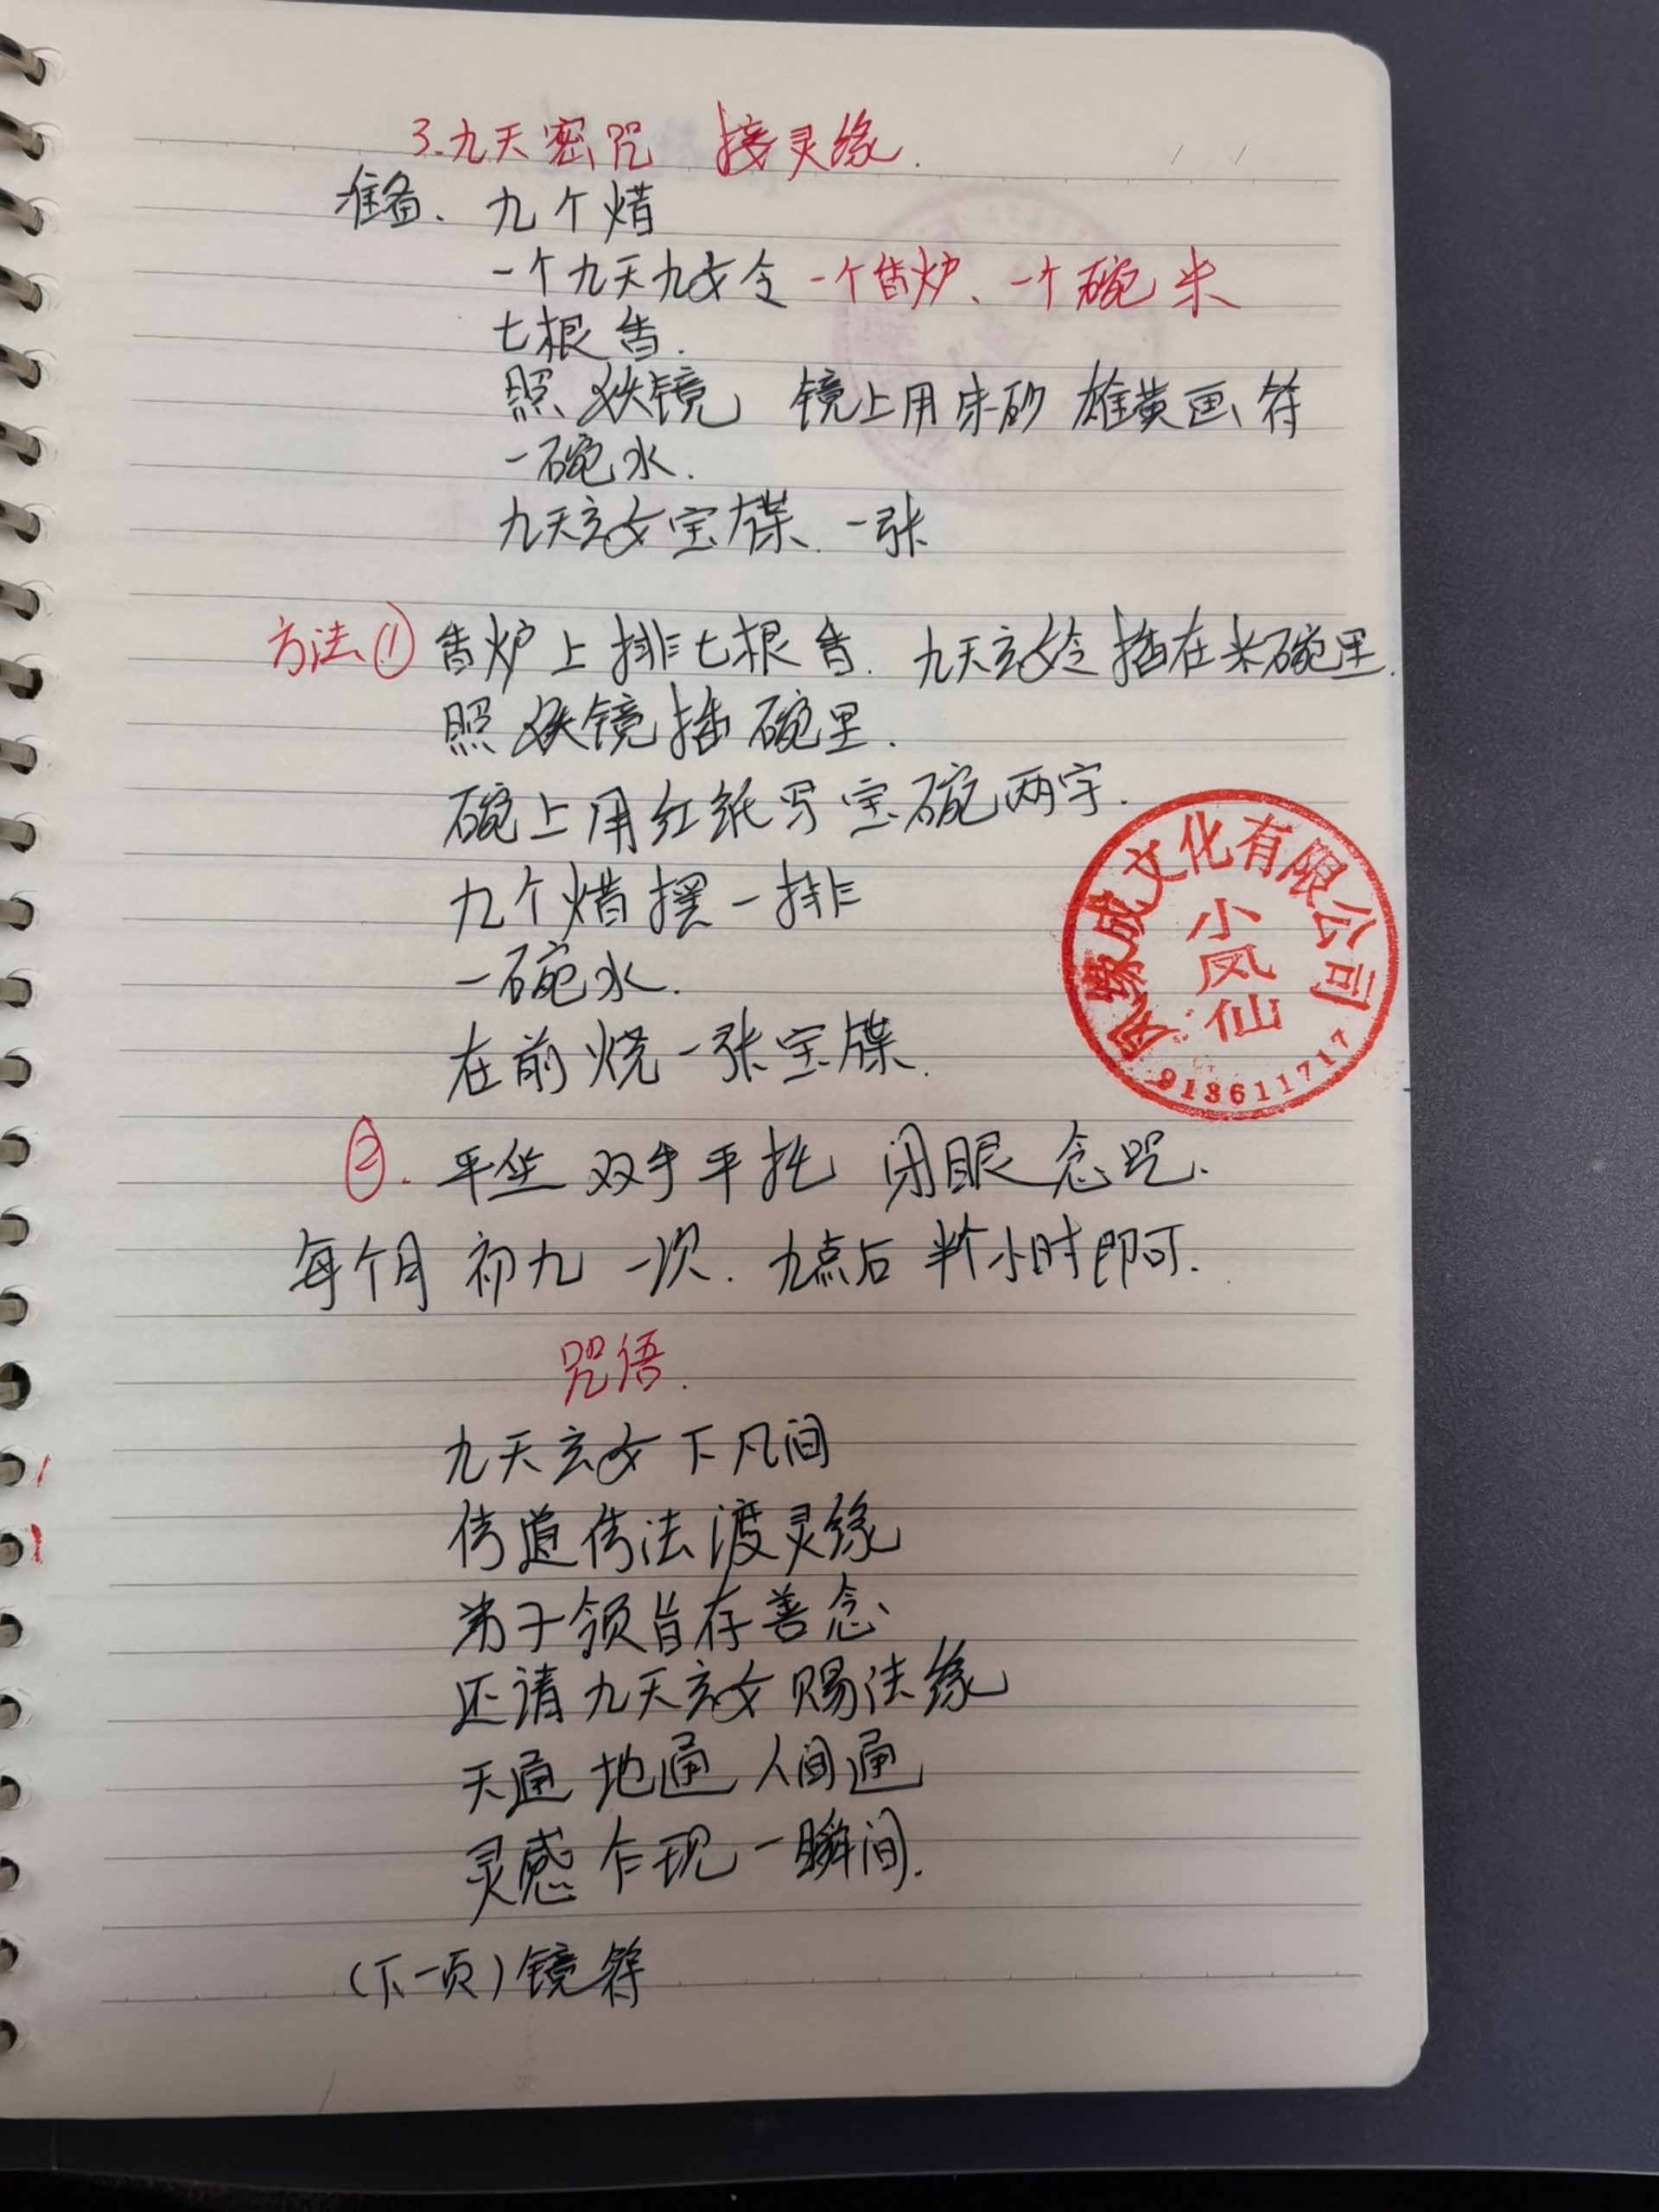 3.九天密咒 接灵缘.
准备. 九个烛
一个九天九女令 一个香炉、一个碗米
七根香.
照妖镜 镜上用朱砂 雄黄画符
一碗水.
九天玄女宝牒 一张
方法① 香炉上排七根香. 九天玄女令插在米碗里.
照妖镜插碗里.
碗上用红纸写宝碗两字.
九个烛摆一排
一碗水.
在前烧一张宝牒.
②. 平坐双手平托 闭眼念咒.
每个月初九一次. 九点后半个小时即可.
咒语.
九天玄女下凡间
传道传法渡灵缘
弟子领旨存善念
还请九天玄女赐法缘
天通地通人间通
灵感乍现一瞬间.
(下一页)镜符
缘成文化有限公司
小
凤
仙
913611717